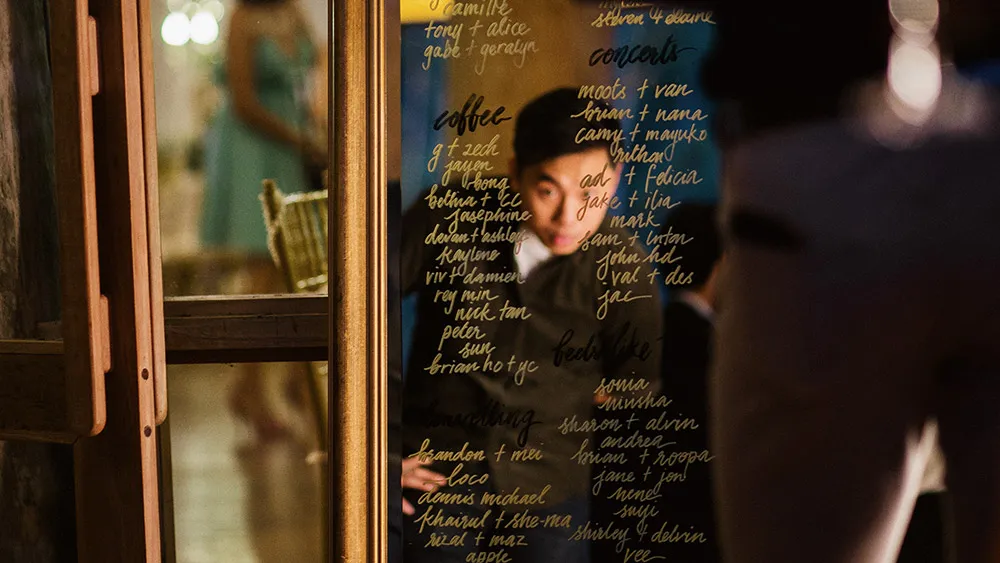 camille
tony + alice
gabe + geralyn
coffee
g + zech
jayen
bong
bethia + CC
josephine
devan + ashley
kaylene
viv + damien
rey min
nick tan
peter
sun
brian ho + yc
something
brandon + mei
loco
dennis michael
khairul + she-ma
rizal + maz
apple
steven + elaine
concerts
moots + van
brian + nana
camy + mayuko
rithan
ad + felicia
jake + ilia
mark
sam + linton
john hd
val + des
jac
sonia
ninsha
sharon + alvin
andrea
brian + roopa
jane + jon
nenei
suyi
shirley + delvin
vee